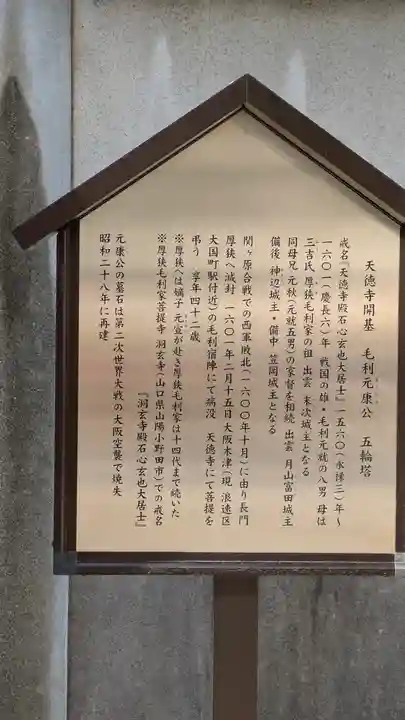 天徳寺開基　毛利元康公　五輪塔
戒名『天徳寺殿石心玄也大居士』一五六〇（永禄三）年～
一六〇一（慶長六）年　戦国の雄・毛利元就の八男　母は
三吉氏　厚狭毛利家の祖　出雲　末次城主となる
同母兄　元秋（元就五男）の家督を相続　出雲　月山富田城主
備後　神辺城主・備中　笠岡城主となる
関ヶ原合戦での西軍敗北（一六〇〇年十月）に由り長門
厚狭へ減封　一六〇一年二月十五日大阪木津（現　浪速区
大国町駅付近）の毛利宿陣にて病没　天徳寺にて菩提を
弔う　享年四十二歳
※厚狭へは嫡子　元宣が赴き厚狭毛利家は十四代まで続いた
※厚狭毛利家菩提寺　洞玄寺（山口県山陽小野田市）での戒名
『洞玄寺殿石心玄也大居士』
元康公の墓石は第二次世界大戦の大阪空襲で焼失
昭和二十八年に再建